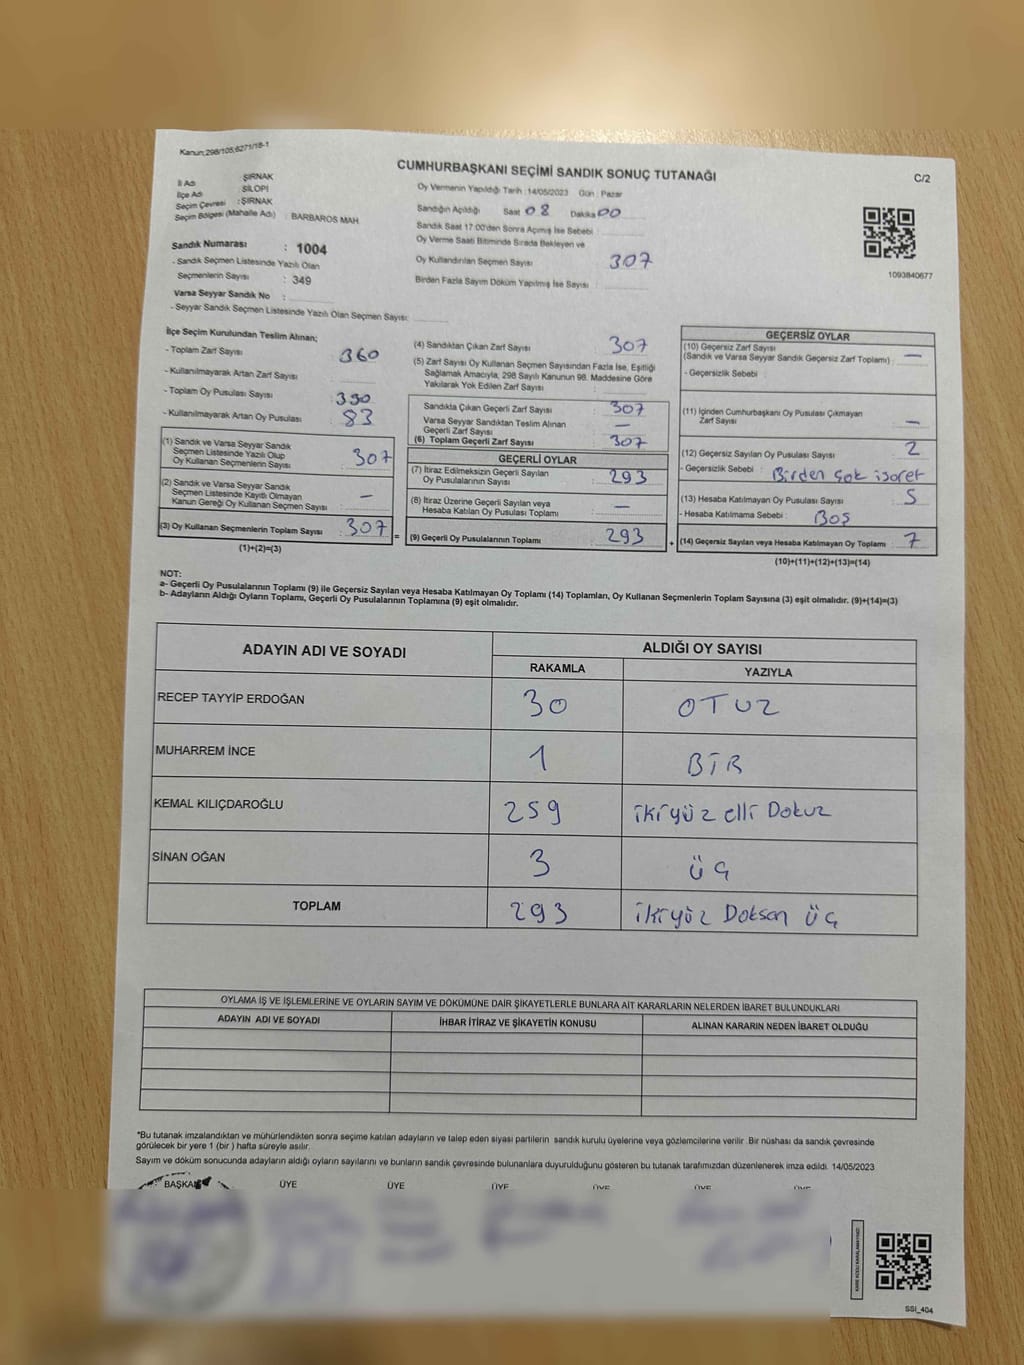 Kanun;298/105;6271/18-1
CUMHURBAŞKANI SEÇİMİ SANDIK SONUÇ TUTANAĞI
C/2
İl Adı ŞIRNAK
İlçe Adı SİLOPİ
Seçim Çevresi : ŞIRNAK
Seçim Bölgesi (Mahalle Adı) : BARBAROS MAH.
Sandık Numarası : 1004
- Sandık Seçmen Listesinde Yazılı Olan
Seçmenlerin Sayısı : 349
Varsa Seyyar Sandık No :
- Seyyar Sandık Seçmen Listesinde Yazılı Olan Seçmen Sayısı:
Oy Vermenin Yapıldığı Tarih : 14/05/2023 Gün : Pazar
Sandığın Açıldığı Saat 08 Dakika 00
Sandık Saat 17:00'den Sonra Açılmış İse Sebebi :
Oy Verme Saati Bitiminde Sırada Bekleyen ve
Oy Kullandırılan Seçmen Sayısı 307
Birden Fazla Sayım Döküm Yapılmış İse Sayısı :
1093840677
İlçe Seçim Kurulundan Teslim Alınan;
- Toplam Zarf Sayısı : 360
- Kullanılmayarak Artan Zarf Sayısı :
- Toplam Oy Pusulası Sayısı : 390
- Kullanılmayarak Artan Oy Pusulası : 83
(1) Sandık ve Varsa Seyyar Sandık
Seçmen Listesinde Yazılı Olup
Oy Kullanan Seçmenlerin Sayısı : 307
(2) Sandık ve Varsa Seyyar Sandık
Seçmen Listesinde Kayıtlı Olmayan
Kanun Gereği Oy Kullanan Seçmen Sayısı : –
(3) Oy Kullanan Seçmenlerin Toplam Sayısı : 307
(1)+(2)=(3)
=
(4) Sandıktan Çıkan Zarf Sayısı : 307
(5) Zarf Sayısı Oy Kullanan Seçmen Sayısından Fazla İse, Eşitliği
Sağlamak Amacıyla, 298 Sayılı Kanunun 98. Maddesine Göre
Yakılarak Yok Edilen Zarf Sayısı :
Sandıkta Çıkan Geçerli Zarf Sayısı : 307
Varsa Seyyar Sandıktan Teslim Alınan
Geçerli Zarf Sayısı : –
(6) Toplam Geçerli Zarf Sayısı : 307
GEÇERLİ OYLAR
(7) İtiraz Edilmeksizin Geçerli Sayılan
Oy Pusulalarının Sayısı : 293
(8) İtiraz Üzerine Geçerli Sayılan veya
Hesaba Katılan Oy Pusulası Toplamı : –
(9) Geçerli Oy Pusulalarının Toplamı : 293
+
GEÇERSİZ OYLAR
(10) Geçersiz Zarf Sayısı
(Sandık ve Varsa Seyyar Sandık Geçersiz Zarf Toplamı) : –
- Geçersizlik Sebebi :
(11) İçinden Cumhurbaşkanı Oy Pusulası Çıkmayan
Zarf Sayısı : –
(12) Geçersiz Sayılan Oy Pusulası Sayısı : 2
- Geçersizlik Sebebi : Birden çok işaret
(13) Hesaba Katılmayan Oy Pusulası Sayısı : 5
- Hesaba Katılmama Sebebi : BOŞ
(14) Geçersiz Sayılan veya Hesaba Katılmayan Oy Toplamı : 7
(10)+(11)+(12)+(13)=(14)
NOT:
a- Geçerli Oy Pusulalarının Toplamı (9) ile Geçersiz Sayılan veya Hesaba Katılmayan Oy Toplamı (14) Toplamları, Oy Kullanan Seçmenlerin Toplam Sayısına (3) eşit olmalıdır. (9)+(14)=(3)
b- Adayların Aldığı Oyların Toplamı, Geçerli Oy Pusulalarının Toplamına (9) eşit olmalıdır.
ADAYIN ADI VE SOYADI ALDIĞI OY SAYISI
RAKAMLA YAZIYLA
RECEP TAYYİP ERDOĞAN 30 OTUZ
MUHARREM İNCE 1 BİR
KEMAL KILIÇDAROĞLU 259 ikiyüz elli Dokuz
SİNAN OĞAN 3 ÜÇ
TOPLAM 293 ikiyüz Doksan üç
OYLAMA İŞ VE İŞLEMLERİNE VE OYLARIN SAYIM VE DÖKÜMÜNE DAİR ŞİKAYETLERLE BUNLARA AİT KARARLARIN NELERDEN İBARET BULUNDUKLARI
ADAYIN ADI VE SOYADI İHBAR İTİRAZ VE ŞİKAYETİN KONUSU ALINAN KARARIN NEDEN İBARET OLDUĞU
*Bu tutanak imzalandıktan ve mühürlendikten sonra seçime katılan adayların ve talep eden siyasi partilerin sandık kurulu üyelerine veya gözlemcilerine verilir .Bir nüshası da sandık çevresinde
görülecek bir yere 1 (bir ) hafta süreyle asılır.
Sayım ve döküm sonucunda adayların aldığı oyların sayılarını ve bunların sandık çevresinde bulunanlara duyurulduğunu gösteren bu tutanak tarafımızdan düzenlenerek imza edildi. 14/05/2023
BAŞKAN ÜYE ÜYE ÜYE ÜYE ÜYE ÜYE
KARE KODU KARALAMAYINIZ!
SSI_404